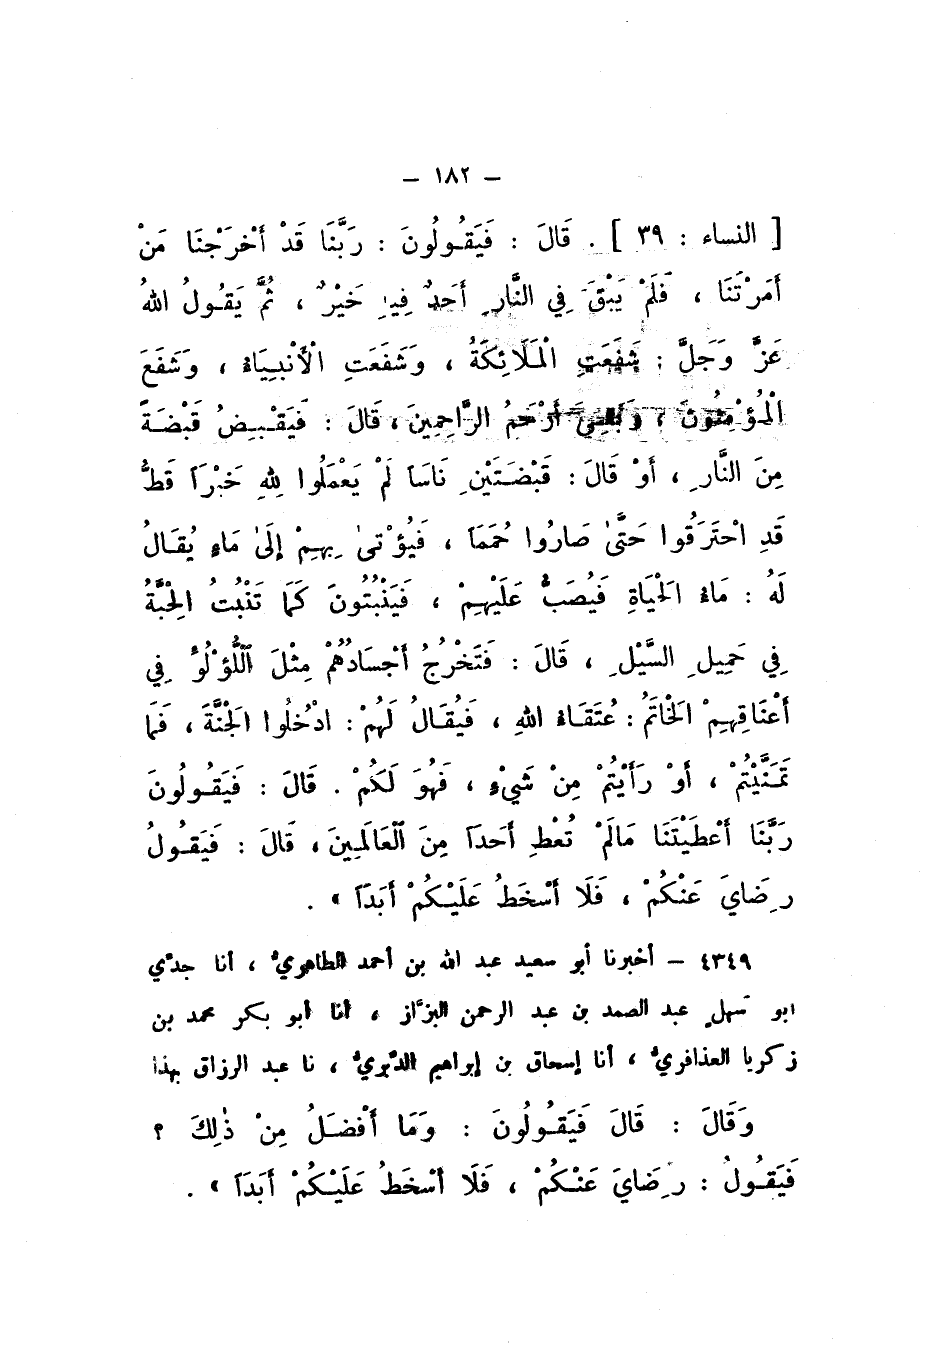 — ١٨٢ —
[ النساء : ٣٩ ] . قَالَ : فَيَقُولُونَ : رَبَّنَا قَدْ أَخْرَجْنَا مَنْ
أَمَرْتَنَا ، فَلَمْ يَبْقَ فِي النَّارِ أَحَدٌ فِيهِ خَيْرٌ ، ثُمَّ يَقُولُ اللهُ
عَزَّ وَجَلَّ : شَفَعَتِ الْمَلَائِكَةُ ، وَشَفَعَتِ الْأَنْبِيَاءُ ، وَشَفَعَ
الْمُؤْمِنُونَ ، وَبَقِيَ أَرْحَمُ الرَّاحِمِينَ ، قَالَ : فَيَقْبِضُ قَبْضَةً
مِنَ النَّارِ ، أَوْ قَالَ : قَبْضَتَيْنِ نَاسَاً لَمْ يَعْمَلُوا لِلهِ خَيْرَاً قَطُّ
قَدِ احْتَرَقُوا حَتَّى صَارُوا حُمَمَاً ، فَيُؤْتَى بِهِمْ إِلَى مَاءٍ يُقَالُ
لَهُ : مَاءُ الْحَيَاةِ فَيُصَبُّ عَلَيْهِمْ ، فَيَنْبُتُونَ كَمَا تَنْبُتُ الْحِبَّةُ
فِي حَمِيلِ السَّيْلِ ، قَالَ : فَتَخْرُجُ أَجْسَادُهُمْ مِثْلَ اللُّؤْلُؤِ فِي
أَعْنَاقِهِمْ الْخَاتَمُ : عُتَقَاءُ اللهِ ، فَيُقَالُ لَهُمْ : ادْخُلُوا الْجَنَّةَ ، فَمَا
تَمَنَّيْتُمْ ، أَوْ رَأَيْتُمْ مِنْ شَيْءٍ ، فَهُوَ لَكُمْ . قَالَ : فَيَقُولُونَ
رَبَّنَا أَعْطَيْتَنَا مَالَمْ تُعْطِ أَحَدَاً مِنَ الْعَالَمِينَ ، قَالَ : فَيَقُولُ
رِضَايَ عَنْكُمْ ، فَلَا أَسْخَطُ عَلَيْكُمْ أَبَدَاً » .
٤٣٤٩ – أخبرنا أبو سعيد عبد الله بن أحمد الطاهريُّ ، أنا جدّي
ابو سَهلٍ عبد الصمد بن عبد الرحمن البزَّاز ، أنا أبو بكر محمد بن
زكريا العذافريُّ ، أنا إسحاق بن إبراهيم الدَّبريُّ ، نا عبد الرزاق بهذا
وَقَالَ : قَالَ فَيَقُولُونَ : وَمَا أَفْضَلُ مِنْ ذٰلِكَ ؟
فَيَقُولُ : رِضَايَ عَنْكُمْ ، فَلَا أَسْخَطُ عَلَيْكُمْ أَبَدَاً » .